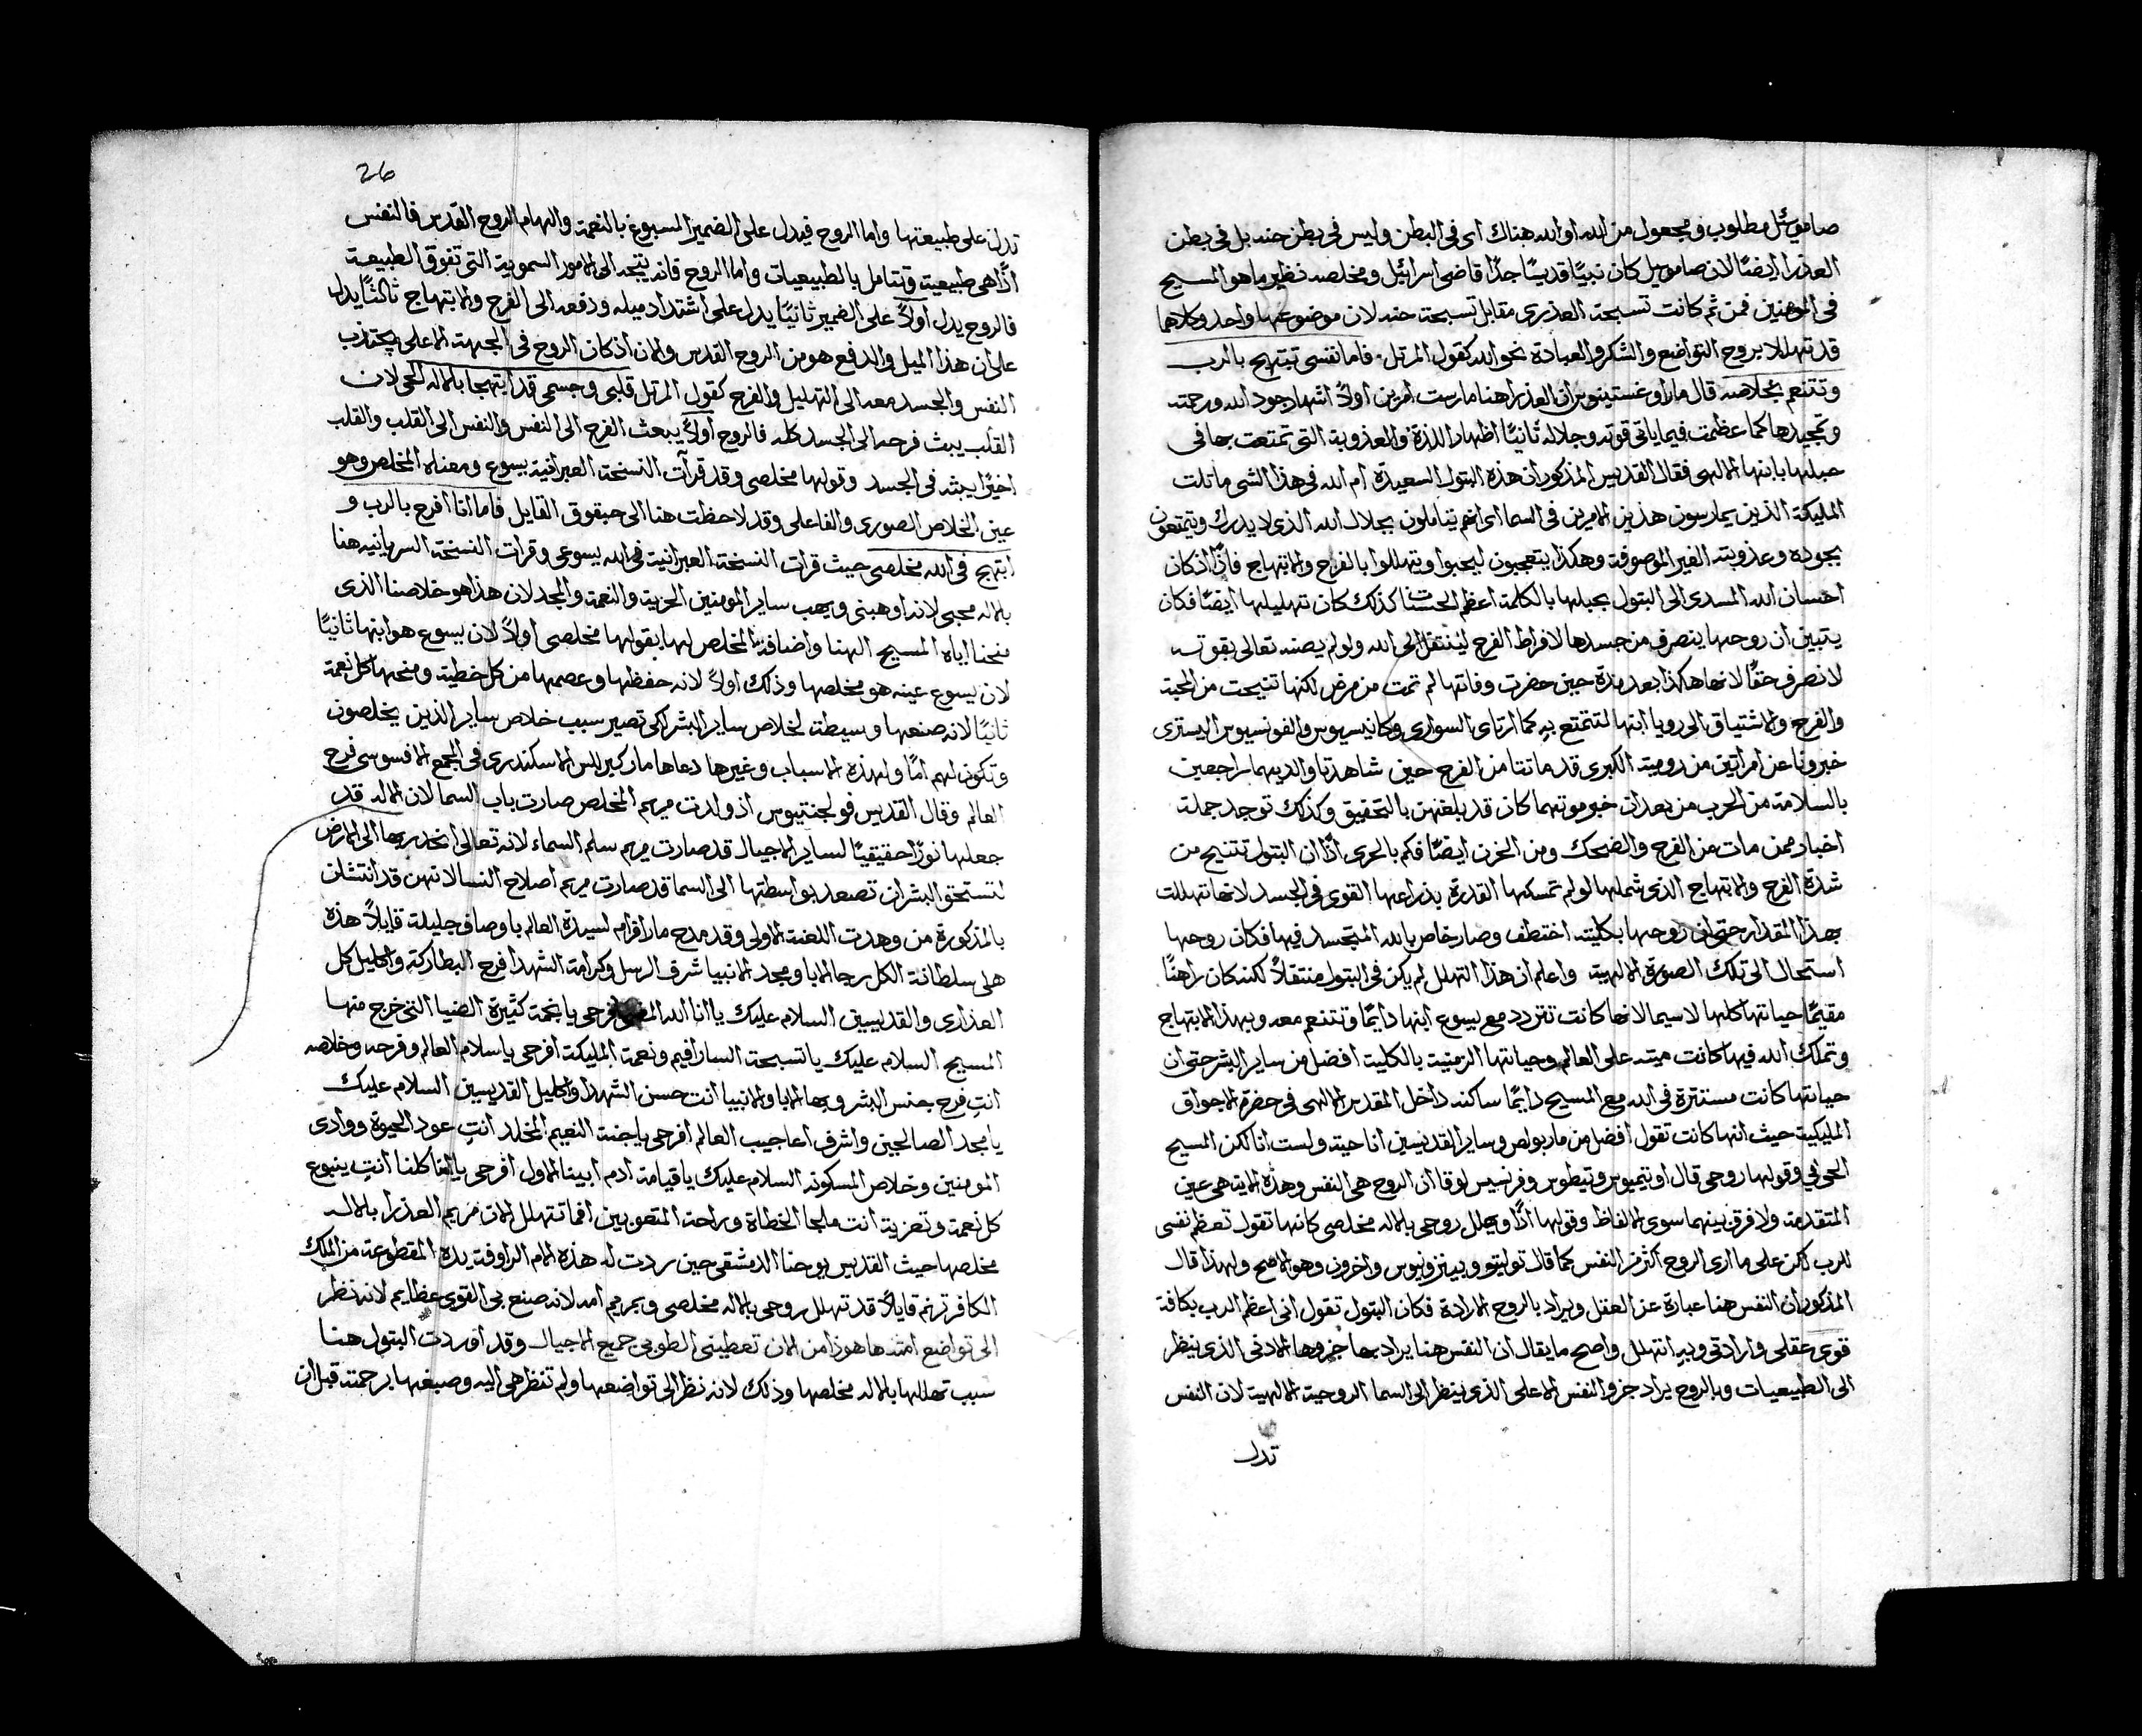 صاموئل مطلوب ومجعول من الله او الله هناك اى فى البطن وليس فى بطن حنه بل فى بطن
العذرا ايضًا لان صامويل كان نبيًا قديسًا جدًا قاضى اسرائيل ومخلصه نظير ما هو المسيح
فى المومنين فمن ثم كانت تسبحة العذرى مقابل تسبحة حنه لان موضوعهما واحد وكلاهما
قد تهللا بروح التواضع والشكر والعبادة نحو الله كقول المرتل فاما نفسى تبتهج بالرب
وتتنعم بخلاصه قال مار اوغستينوس ان العذرا هنا مارست امرين اولاً اشهاد جود الله ورحمته
وتمجيدها كما عظمت فيما ياتى قوته وجلاله ثانيًا اظهار اللذة والعذوبة التى تمتعت بها فى
حبلها بابنها الالهى فقال القديس المذكور ان هذه البتول السعيدة ام الله فى هذا الشى ماثلت
المليكة الذين يمارسون هذين الامرين فى السما اى انهم يتاملون بجلال الله الذى لا يدرك ويتمتعون
بجوده وعذوبته الغير الموصوفة وهكذا يتعجبون ليحبوا ويتهللوا بالفرح والابتهاج فاذًا اذ كان
احسان الله المسدى الى البتول بحبلها بالكلمة اعظم الحسنات كذلك كان تهليلها ايضًا فكان
يتبين ان روحها ينصرف من جسدها لافراط الفرح لينتقل الى الله ولو لم يصنه تعالى بقوته
لانصرف حقًا لانها هكذا بعد مدة حين حضرت وفاتها لم تمت من مرض لكنها تنيحت من المحبة
والفرح والاشتياق الى رويا ابنها لتتمتع به كما ارتاى السوارى وكانيسيوس والفونسيوس اليسترى
خبرونا عن امراتين من رومية الكبرى قد ماتتا من الفرح حين شاهدتا والديهما راجعين
بالسلامة من الحرب من بعد ان خبر موتهما كان قد بلغهن بالتحقيق وكذلك توجد جملة
اخبار ممن مات من الفرح والضحك ومن الحزن ايضًا فكم بالحرى اذًا ان البتول تتنيح من
شدة الفرح والابتهاج الذى شملها لو لم تمسكها القدرة بذراعها القوى فى الجسد لانها تهللت
بهذا المقدار حتى ان روحها بكليته اختطف وصار خاص بالله المتجسد فيها فكان روحها
استحال الى تلك الصورة الالهية واعلم ان هذا التهلل لم يكن فى البتول منتقلاً لكنه كان راهنًا
مقيمًا حياتها كلها لاسيما لانها كانت تتردد مع يسوع ابنها دايمًا وتتنعم معه وبهذا الابتهاج
وتملك الله فيها كانت ميته على العالم وحياتها الزمنية بالكلية افضل من ساير البشر حتى ان
حياتها كانت مستترة فى الله مع المسيح دايمًا ساكنه داخل المقدس الالهى فى حضرة الاجواق
المليكية حيث انها كانت تقول افضل من مار بولص وساير القديسين انا حيته ولست انا لكن المسيح
الحى فيّ وقولها روحى قال اوتيميوس وتيطوس وفرنسيس لوقا ان الروح هى النفس وهذه الاية هى عين
المتقدمة ولا فرق بينهما سوى الالفاظ وقولها اذًا ويهلل روحى بالاله مخلصى كانها تقول تعظم نفسى
للرب لكن على ما ارى الروح اكثر من النفس كما قال توليتو وبيتر ونيوس واخرون وهو الاصح ولهذا قال
المذكور ان النفس هنا عبارة عن العقل ويراد بالروح الارادة فكان البتول تقول انى اعظم الرب بكافة
قوى عقلى وارادتى وبه اتهلل واصح ما يقال ان النفس هنا يراد بها جزوها الادنى الذى ينظر
الى الطبيعيات وبالروح يراد جزو النفس الاعلى الذى ينظر الى السما الروحية الالهية لان النفس
تدل
26
تدل على طبيعتها واما الروح فيدل على الضمير المسبوغ بالنعمة والهام الروح القدس فالنفس
اذًا هى طبيعية وتتامل بالطبيعيات واما الروح فانه يتجه الى الامور السموية التى تفوق الطبيعة
فالروح يدل اولاً على الضمير ثانيًا يدل على اشتداد ميله ودفعه الى الفرح والابتهاج ثالثًا يدل
على ان هذا الميل والدفع هو من الروح القدس والان اذ كان الروح فى الجهة الاعلى يجتذب
النفس والجسد معه الى التهليل والفرح كقول المرتل قلبى وجسمى قد ابتهجا بالاله الحى لان
القلب يبث فرحه الى الجسد كله فالروح اولاً يبعث الفرح الى النفس والنفس الى القلب والقلب
اخيرًا يبثه فى الجسد وقولها مخلصى وقد قرآت النسخة العبرانية بيسوع ومعناه المخلص وهو
عين الخلاص الصورى والفاعلى وقد لاحظت هنا الى حبقوق القايل فاما انا افرح بالرب و
ابتهج فى الله مخلصى حيث قرات النسخة العبرانية فى الله يسوعى وقرات النسخة السريانيه هنا
بالاله محيى لانه اوهبنى ويهب ساير المومنين الحرية والنعمة والمجد لان هذا هو خلاصنا الذى
منحنا اياه المسيح الهنا واضافة المخلص لها بقولها مخلصى اولاً لان يسوع هو ابنها ثانيًا
لان يسوع عينه هو مخلصها وذلك اولاً لانه حفظها وعصمها من كل خطية ومنحها كل نعمة
ثانيًا لانه صنعها وسيطة لخلاص ساير البشر اكى تصير سبب خلاص ساير الذين يخلصون
وتكون لهم امًا ولهذه الاسباب وغيرها دعاها مار كيرللس الاسكندرى فى المجمع الافسوسى فرح
العالم وقال القديس فولجنتيوس اذ ولدت مريم المخلص صارت باب السما لان الاله قد
جعلها نورًا حقيقيًا لساير الاجيال قد صارت مريم سلم السماء لانه تعالى انحدر بها الى الارض
لتستحق البشر ان تصعد بواسطتها الى السما قد صارت مريم اصلاح النسا لانهن قد انتشلن
بالمذكورة من وهدت اللعنة الاولى وقد مدح مار افرام لسيدة العالم باوصاف جليلة قايلاً هذه
هى سلطانة الكل رجا الابا ومجد الانبيا شرف الرسل وكرامة الشهدا فرح البطاركة واكليل كل
العذارى والقديسين السلام عليك يا انا الله افرحى يا نجمة كثيرة الضيا التى خرج منها
المسيح السلام عليك يا تسبحة السارافيم ونعمة المليكة افرحى يا سلام العالم وفرحه وخلاصه
انتِ فرح جنس البشر وبها الابا والانبيا انت حسن الشهدا واكليل القديسين السلام عليك
يا مجد الصالحين واشرف اعاجيب العالم افرحى يا جنة النعيم المخلد انتِ عود الحيوة ووادى
المومنين وخلاص المسكونه السلام عليك يا قيامة ادم ابينا الاول افرحى يا امنا كلنا انتِ ينبوع
كل نعمة وتعزية انت ملجا الخطاة وراحة المتعوبين افما تتهلل الان مريم العذرا بالاله
مخلصها حيث القديس يوحنا الدمشقى حين ردت له هذه الام الراوفة يده المقطوعة من الملك
الكافر ترنم قايلاً قد تهلل روحى بالاله مخلصى وبمريم امه لانه صنع بى القوى عظايم لانه نظر
الى تواضع امته ها هوذا من الان تعطينى الطوبى جميع الاجيال وقد اوردت البتول هنا
سبب تهللها بالاله مخلصها وذلك لانه نظر الى تواضعها ولم تنظر هى اليه وصبغها برحمته قبل ان